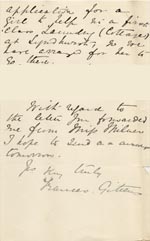 application for a
Girl to help in a first
class Laundry (Cottages
at Lyndhurst) so we
have arranged for her to
go there.
With regard to
the letter you forwarded
me from Miss Milner
I hope to send an answer
tomorrow.
Yrs very truly
Frances